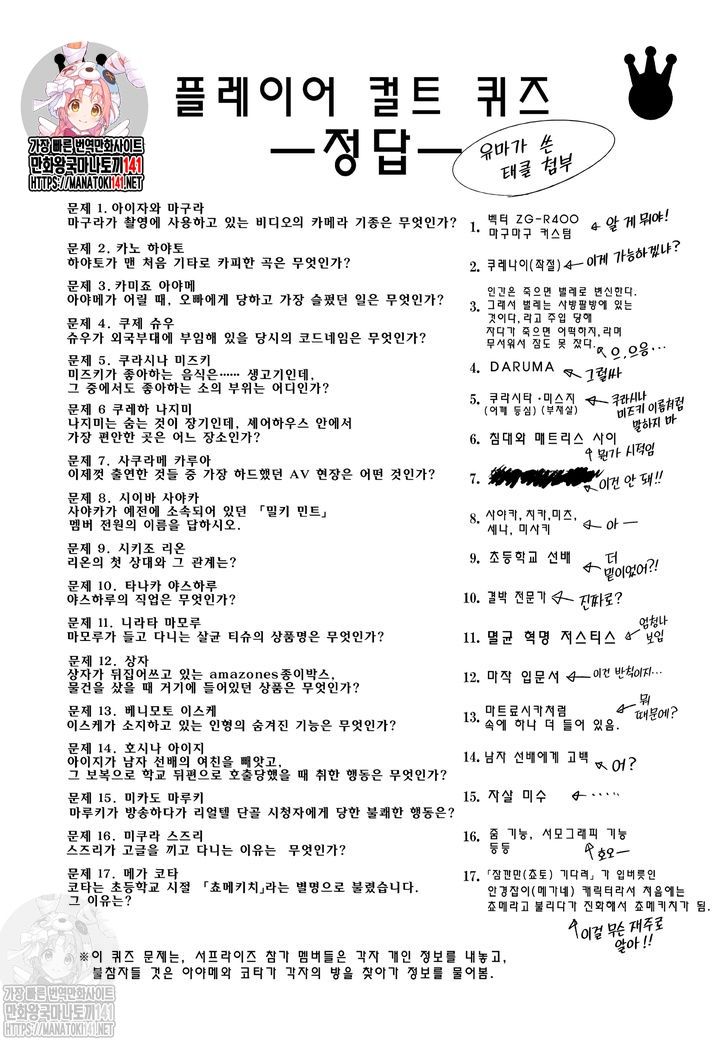 플레이어 컬트 퀴즈
—정답—
유마가 쓴
태클 첨부
가장 빠른 번역만화사이트
만화왕국마나토끼141
HTTPS://MANATOKI141.NET
문제 1. 아이자와 마구라
마구라가 촬영에 사용하고 있는 비디오의 카메라 기종은 무엇인가?
문제 2. 카노 하야토
하야토가 맨 처음 기타로 카피한 곡은 무엇인가?
문제 3. 카미죠 아야메
아야메가 어릴 때, 오빠에게 당하고 가장 슬펐던 일은 무엇인가?
문제 4. 쿠제 슈우
슈우가 외국부대에 부임해 있을 당시의 코드네임은 무엇인가?
문제 5. 쿠라시나 미즈키
미즈키가 좋아하는 음식은…… 생고기인데,
그 중에서도 좋아하는 소의 부위는 어디인가?
문제 6 쿠레하 나지미
나지미는 숨는 것이 장기인데, 셰어하우스 안에서
가장 편안한 곳은 어느 장소인가?
문제 7. 사쿠라메 카루아
이제껏 출연한 것들 중 가장 하드했던 AV 현장은 어떤 것인가?
문제 8. 시이바 사야카
사야카가 예전에 소속되어 있던 「밀키 민트」
멤버 전원의 이름을 답하시오.
문제 9. 시키조 리온
리온의 첫 상대와 그 관계는?
문제 10. 타나카 야스하루
야스하루의 직업은 무엇인가?
문제 11. 니라타 마모루
마모루가 들고 다니는 살균 티슈의 상품명은 무엇인가?
문제 12. 상자
상자가 뒤집어쓰고 있는 amazones종이박스,
물건을 샀을 때 거기에 들어있던 상품은 무엇인가?
문제 13. 베니모토 이스케
이스케가 소지하고 있는 인형의 숨겨진 기능은 무엇인가?
문제 14. 호시나 아이지
아이지가 남자 선배의 여친을 빼앗고,
그 보복으로 학교 뒤편으로 호출당했을 때 취한 행동은 무엇인가?
문제 15. 미카도 마루키
마루키가 방송하다가 리얼텔 단골 시청자에게 당한 불쾌한 행동은?
문제 16. 미쿠라 스즈리
스즈리가 고글을 끼고 다니는 이유는 무엇인가?
문제 17. 메가 코타
코타는 초등학교 시절 「쵸메키치」라는 별명으로 불렸습니다.
그 이유는?
1. 벡터 ZG-R400
마구마구 커스텀
알 게 뭐야!
2. 쿠레나이(좌절)
이게 가능하겠냐?
인간은 죽으면 벌레로 변신한다.
3. 그래서 벌레는 사방팔방에 있는
것이다, 라고 주입 당해
자다가 죽으면 어떡하지, 라며
무서워서 잠도 못 잤다.
으, 으응…
4. DARUMA
그럴싸
5. 쿠라시타·미스지
(어깨 등심) (부채살)
쿠라시나
미즈키 이름처럼
말하지 마
6. 침대와 매트리스 사이
뭔가 시적임
7.
이건 안 돼!!
8. 사야카, 치카, 미즈,
세나, 미사키
아—
9. 초등학교 선배
더
밑이었어?!
10. 결박 전문가
진짜로?
11. 멸균 혁명 저스티스
엄청나
보임
12. 마작 입문서
이건 반칙이지…
13. 마트료시카처럼
속에 하나 더 들어 있음.
뭐
때문에?
14. 남자 선배에게 고백
어?
15. 자살 미수
·····
16. 줌 기능, 서모그래피 기능
등등
호오—
17. 「잠깐만(쵸토) 기다려」가 입버릇인
안경잡이(메가네) 캐릭터라서 처음에는
쵸메라고 불리다가 진화해서 쵸메키치가 됨.
이걸 무슨 재주로
알아!!
※이 퀴즈 문제는, 서프라이즈 참가 멤버들은 각자 개인 정보를 내놓고,
불참자들 것은 아야메와 코타가 각자의 방을 찾아가 정보를 물어봄.
가장 빠른 번역만화사이트
만화왕국마나토끼141
HTTPS://MANATOKI141.NET